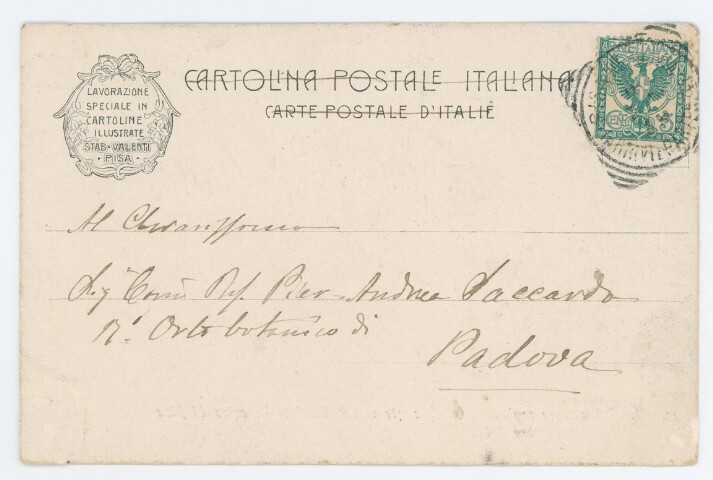 LAVORAZIONE
SPECIALE IN
CARTOLINE
ILLUSTRATE
STAB. VALENTI
PISA
CARTOLINA POSTALE ITALIANA
CARTE POSTALE D'ITALIE
Al Chiarissimo
Sig. Comm. Prof. Pier-Andrea Saccardo
Rº Orto botanico di
Padova